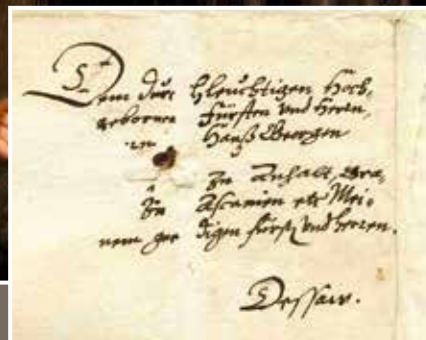 Dem durc hleuchtigen Hoch,
gebornen Fürsten vnd Herrn,
rn Hanß Georgen
zu Anhalt, Gra,
Zu Ascanien etc Mei,
nem gne digen Fürst vnd herren.
Dessaw.